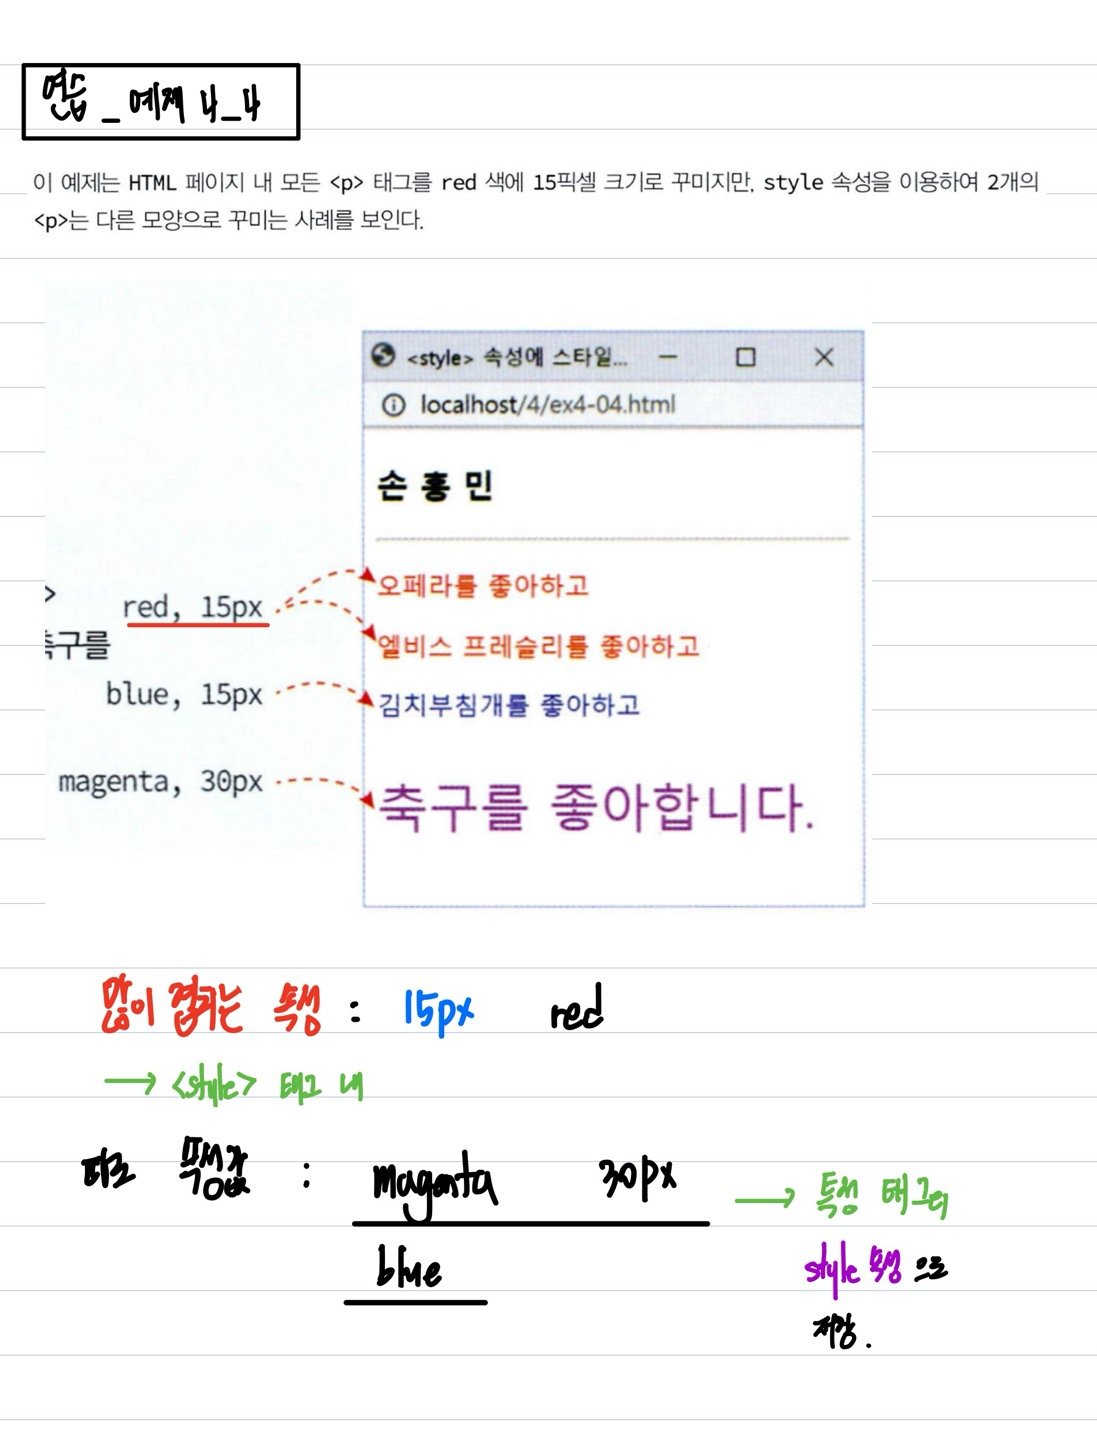 연습_예제 4_4
이 예제는 HTML 페이지 내 모든 <p> 태그를 red 색에 15픽셀 크기로 꾸미지만, style 속성을 이용하여 2개의
<p>는 다른 모양으로 꾸미는 사례를 보인다.
<style> 속성에 스타일...
localhost/4/ex4-04.html
손 흥 민
>
red, 15px
오페라를 좋아하고
축구를
엘비스 프레슬리를 좋아하고
blue, 15px
김치부침개를 좋아하고
magenta, 30px
축구를 좋아합니다.
많이 겹치는 속성 : 15px red
→ <style> 태그 내
따로 속성값 : magenta 30px → 특정 태그의
blue style 속성으로
저장.